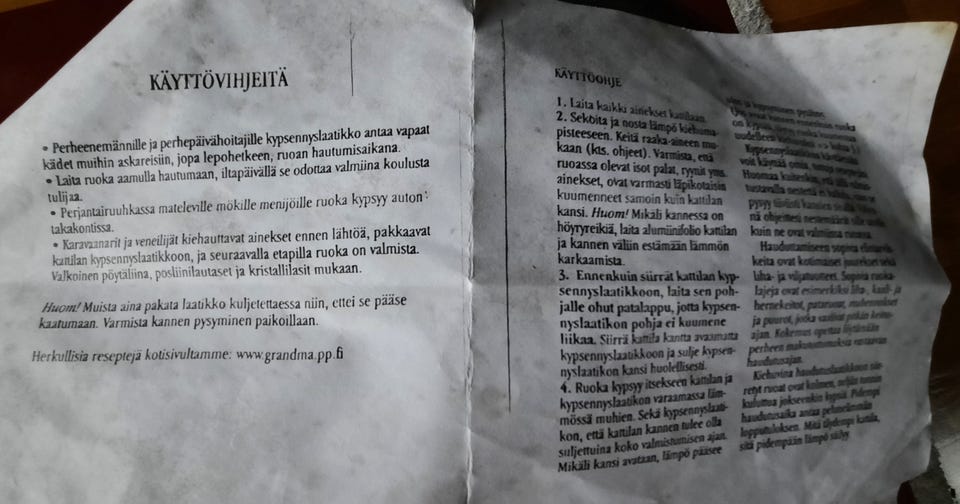 KÄYTTÖVIHJEITÄ
• Perheenemännille ja perhepäivähoitajille kypsennyslaatikko antaa vapaat
kädet muihin askareisiin, jopa lepohetkeen, ruoan hautumisaikana.
• Laita ruoka aamulla hautumaan, iltapäivällä se odottaa valmiina koulusta
tulijaa.
• Perjantairuuhkassa mateleville mökille menijöille ruoka kypsyy auton
takakontissa.
• Karavaanarit ja veneilijät kiehauttavat ainekset ennen lähtöä, pakkaavat
kattilan kypsennyslaatikkoon, ja seuraavalla etapilla ruoka on valmista.
Valkoinen pöytäliina, posliinilautaset ja kristallilasit mukaan.
Huom! Muista aina pakata laatikko kuljetettaessa niin, ettei se pääse
kaatumaan. Varmista kannen pysyminen paikoillaan.
Herkullisia reseptejä kotisivultamme: www.grandma.pp.fi
KÄYTTÖOHJE
1. Laita kaikki ainekset kattilaan.
2. Sekoita ja nosta lämpö kiehuma-
pisteeseen. Keitä raaka-aineen mu-
kaan (kts. ohjeet). Varmista, että
ruoassa olevat isot palat, ryynit yms.
ainekset, ovat varmasti läpikotaisin
kuumenneet samoin kuin kattilan
kansi. Huom! Mikäli kannessa on
höyryreikiä, laita alumiinifolio kattilan
ja kannen väliin estämään lämmön
karkaamista.
3. Ennenkuin siirrät kattilan kyp-
sennyslaatikkoon, laita sen poh-
jalle ohut patalappu, jotta kypsen-
nyslaatikon pohja ei kuumene
liikaa. Siirrä kattila kantta avaamatta
kypsennyslaatikkoon ja sulje kypsen-
nyslaatikon kansi huolellisesti.
4. Ruoka kypsyy itsekseen kattilan ja
kypsennyslaatikon varaamassa läm-
mössä muhien. Sekä kypsennyslaati-
kon, että kattilan kannen tulee olla
suljettuina koko valmistumisen ajan.
Mikäli kansi avataan, lämpö pääsee
uudelleen
Kypsennyslaatikon
voit käyttää omia
Huomaa kuitenkin, että
nesteettä ei
pysyy tiiviisti kannen
ohjeittesi nestemäärät
kuin ne ovat valmiina
Hauduttamiseen sopivia
keita ovat kotimaiset juurekset sekä
liha- ja viljatuotteet. Sopivia ruoka-
lajeja ovat esimerkiksi liha-, kaali- ja
hernekeitot, pataruoat, muhennokset
ja puurot, jotka vaativat pitkän keitto-
ajan. Kokemus opettaa löytämään
perheen makutottumuksia vastaavan
haudutusajan.
Kiehuvina haudutuslaatikkoon siir-
retyt ruoat ovat kolmen, neljän tunnin
kuluttua jokseenkin kypsiä. Pidempi
haudutusaika antaa pehmeämmän
lopputuloksen. Mitä täydempi kattila,
sitä pidempään lämpö säilyy.